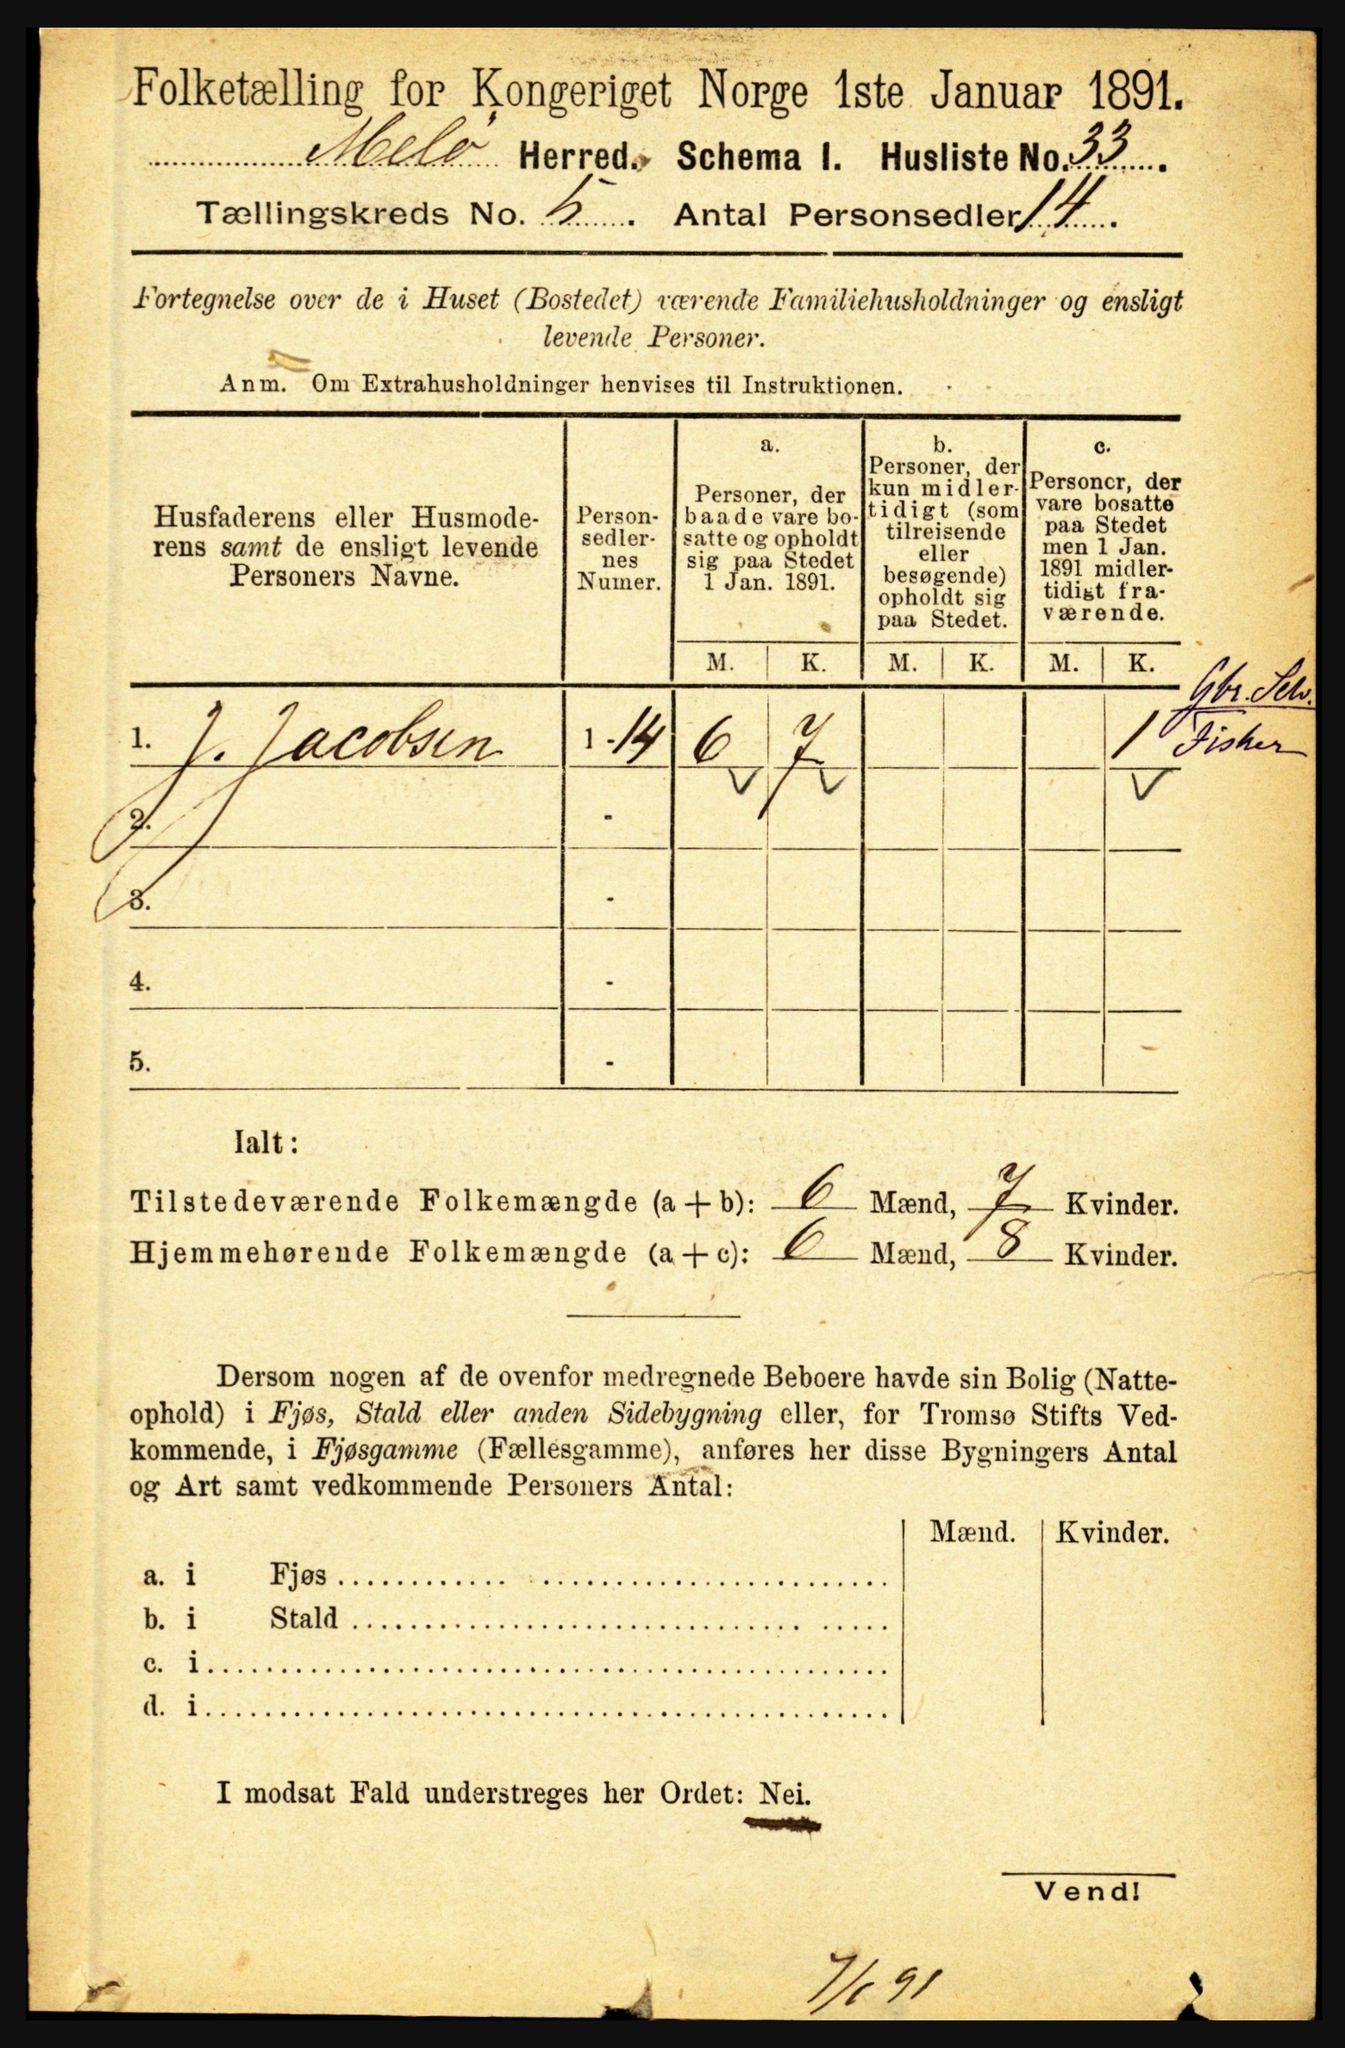 Folketælling for Kongeriget Norge 1ste Januar 1891.
Melö Herred. Schema I. Husliste No. 33.
Tællingskreds No. 5. Antal Personsedler 14.
Fortegnelse over de i Huset (Bostedet) værende Familiehusholdninger og ensligt
levende Personer.
Anm. Om Extrahusholdninger henvises til Instruktionen.
Husfaderens eller Husmode-
rens samt de ensligt levende
Personers Navne.
Person-
sedler-
nes
Numer.
a.
Personer, der
baade vare bo-
satte og opholdt
sig paa Stedet
1 Jan. 1891.
b.
Personer, der
kun midler-
tidigt (som
tilreisende
eller
besøgende)
opholdt sig
paa Stedet.
c.
Personer, der
vare bosatte
paa Stedet
men 1 Jan.
1891 midler-
tidigt fra-
værende.
M. K. M. K. M. K.
Gbr. Selv.
1. J. Jacobsen 1-14 6 7 1 Fisker
2. -
3. -
4. -
5. -
Ialt:
Tilstedeværende Folkemængde (a+b): 6 Mænd, 7 Kvinder.
Hjemmehørende Folkemængde (a+c): 6 Mænd, 8 Kvinder.
Dersom nogen af de ovenfor medregnede Beboere havde sin Bolig (Natte-
ophold) i Fjøs, Stald eller anden Sidebygning eller, for Tromsø Stifts Ved-
kommende, i Fjøsgamme (Fællesgamme), anføres her disse Bygningers Antal
og Art samt vedkommende Personers Antal:
Mænd. Kvinder.
a. i Fjøs
b. i Stald
c. i
d. i
I modsat Fald understreges her Ordet: Nei.
Vend!